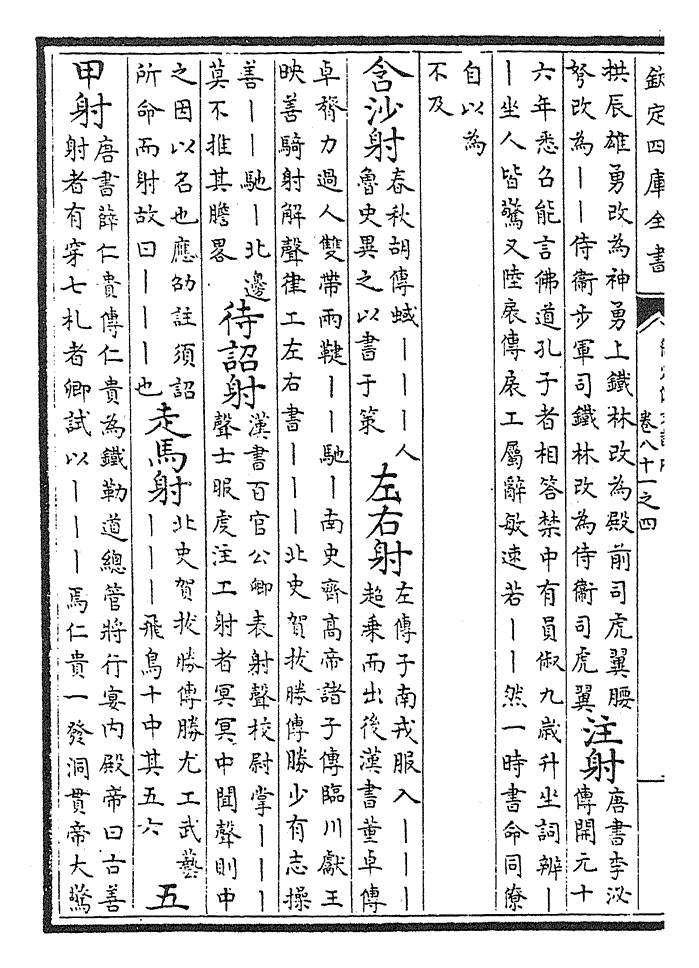 欽定四庫全書
卷八十一之四
拱辰雄勇改為神勇上鐵林改為殿前司虎翼腰
弩改為——侍衛步軍司鐵林改為侍衞司虎翼
注射
唐書李泌
傳開元十
六年悉召能言佛道孔子者相答禁中有員俶九歳升坐詞辨—
—坐人皆驚又陸扆傳扆工屬辭敏速若——然一時書命同僚
自以為
不及
含沙射
春秋胡傳蜮———人
魯史異之以書于策
左右射
左傳子南戎服入———
超乗而出後漢書董卓傳
卓膂力過人雙帶兩鞬——馳—南史齊高帝諸子傳臨川獻王
映善騎射解聲律工左右書———北史賀拔勝傳勝少有志操
善——馳—北邊
莫不推其膽畧
待詔射
漢書百官公卿表射聲校尉掌———
聲士服虔注工射者冥冥中聞聲則中
之因以名也應劭註須詔
所命而射故曰———也
走馬射
北史賀拔勝傳勝尤工武藝
———飛鳥十中其五六
五
甲射
唐書薛仁貴傳仁貴為鐵勒道總管將行宴内殿帝曰古善
射者有穿七札者卿試以———焉仁貴一發洞貫帝大驚